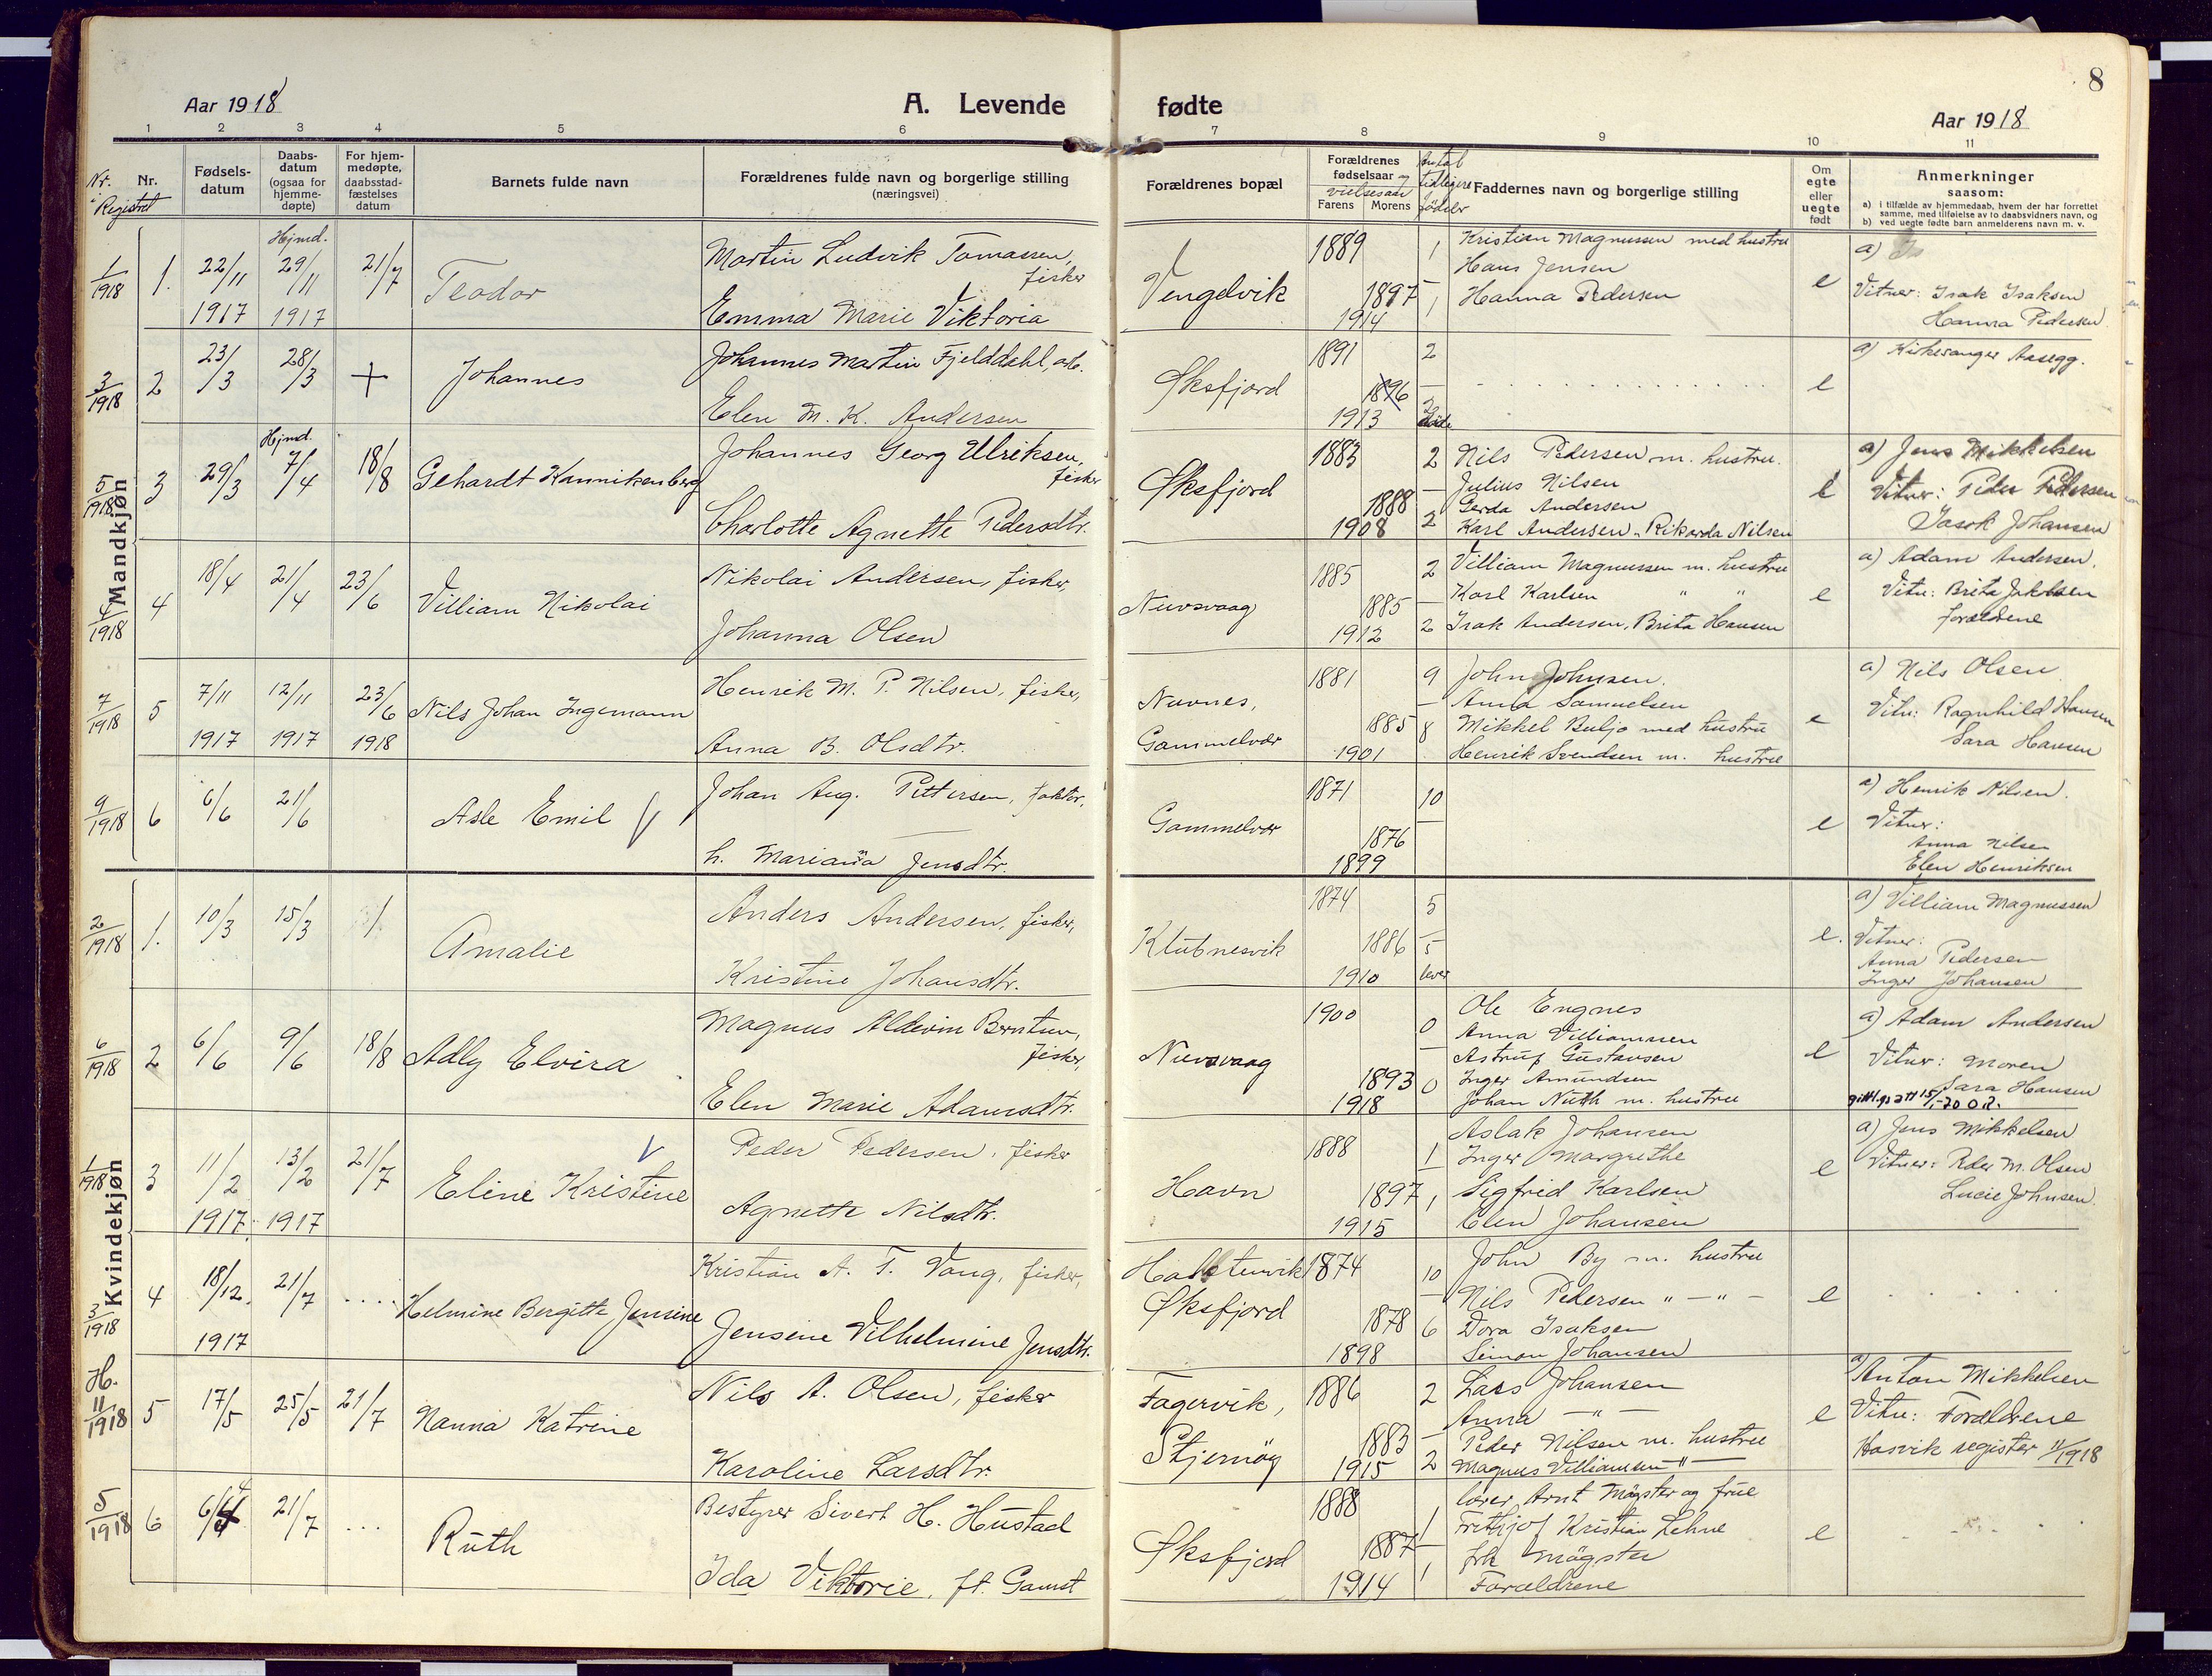 8
Aar 1918 A. Levende fødte Aar 1918
1 2 3 4 5 6 7 8 9 10 11
Nr. i Registret
Nr.
Fødsels-datum
Daabs-datum (ogsaa for hjemme-døpte)
For hjem-medøpte, daabsstad-fæstelses datum
Barnets fulde navn
Forældrenes fulde navn og borgerlige stilling (næringsvei)
Forældrenes bopæl
Forældrenes fødselsaar og vielsesaar
Farens Morens
Antal tidligere fødsler
Faddernes navn og borgerlige stilling
Om egte eller uegte født
Anmerkninger
saasom:
a) i tilfælde av hjemmedaab, hvem der har forrettet samme, med tilføielse av to daabsvidners navn, og
b) ved uegte fødte barn anmelderens navn m. v.
Mandkjøn
1/1918 1. 22/11 1917 Hjmd. 29/11 1917 21/7 Teodor
Martin Ludvik Tomassen, fisker
Emma Marie Viktoria
Vengelvik 1889 1897 1914 1 – 1
Kristian Magnussen med hustru
Hans Jensen
Hanna Pedersen
e
a)
Vitner: Isak Isaksen
Hanna Pedersen
3/1918 2 23/3 28/3 + Johannes
Johannes Martin Fjelddahl, arb.
Elen M. K. Andersen
Øksfjord 1891 1896 1913 2 – 2 døde
e
a) Kirkesanger Aasegg.
5/1918 3 29/3 Hjmd. 7/4 18/8 Gehardt Kannikenberg
Johannes Georg Ulriksen, fisker
Charlotte Agnette Pedersdtr.
Øksfjord 1883 1888 1908 2 – 2
Nils Pedersen m. hustru.
Julius Nilsen
Gerda Andersen
Karl Andersen, Rikarda Nilsen
e
a) Jens Mikkelsen
Vitner: Peder Pedersen
Isak Johansen
4/1918 4 18/4 21/4 23/6 Villiam Nikolai
Nikolai Andersen, fisker,
Johanna Olsen
Nuvsvaag 1885 1885 1912 2 – 2
Villiam Magnussen m. hustru
Karl Karlsen " "
Isak Andersen, Brita Hansen
e
a) Adam Andersen.
Vitn: Brita Jakobsen
forældrene
7/1918 5 7/11 1917 12/11 1917 23/6 1918 Nils Johan Ingemann
Henrik M. P. Nilsen, fisker,
Anna B. Olsdtr.
Nuvnes, Gammelvær 1881 1885 1901 9 – 8
John Johnsen.
Anna Samuelsen
Mikkel Buljo med hustru
Henrik Svendsen m. hustru
e
a) Nils Olsen
Vitn: Ragnhild Hansen
Sara Hansen
9/1918 6 6/6 21/6 Asle Emil
Johan Aug. Pettersen, faktor,
h. Marianna Jensdtr.
Gammelvær 1871 1876 1899 10 –
e
a) Henrik Nilsen.
Vitner:
Anna Nilsen
Elen Henriksen
Kvindekjøn
2/1918 1. 10/3 15/3 / Amalie
Anders Andersen, fisker,
Kristine Johansdtr.
Klubnesvik 1874 1886 1910 5 – 5 lever
e.
a) Villiam Magnussen
Vitner:
Anna Pedersen
Inger Johansen
6/1918 2 6/6 9/6 18/8 Adly Elvira
Magnus Aldevin Berntsen, fisker,
Elen Marie Adamsdtr.
Nuvsvaag 1900 1893 1918 0 – 0
Ole Engnes
Anna Villiamsen
Astrup Gustavsen
Inger Amundsen
Johan Nuth m. hustru
e
a) Adam Andersen
Vitner: Moren
Sara Hansen
1/1918 3 11/2 1917. 13/2 1917 21/7 Eline Kristine
Peder Pedersen, fisker
Agnette Nilsdtr.
Havn 1888 1897 1915 1 – 1
Aslak Johansen
Inger Margrethe
Sigfrid Karlsen
Elen Johansen
e
a) Jens Mikkelsen
Vitner: Peder M. Olsen
Lucie Johnsen.
3/1918 4 18/12. 1917 21/7 .... Helmine Bergitte Jensine
Kristian A. T. Vang, fisker,
Jensine Vilhelmine Jensdtr.
Øksfjord 1874 1878 1898 10 – 6
John By m. hustru
Nils Pedersen " – " –
Dora Isaksen
Simon Johansen
e
H. 11/1918 5 17/5 25/5 21/7 Nanna Katrine
Nils A. Olsen, fisker
Karoline Larsdtr.
Fagervik, Stjernøy 1886 1883 1915 2 – 2
Lars Johansen
Anna – " –
Peder Nilsen m. hustru
Magnus Villiamsen "
e
a) Anton Mikkelsen
Vitn: Forældrene
Hasvik register 11/1918
5/1918 6 6/4 21/7 ... Ruth
Bestyrer Sivert H. Hustad
Ida Viktorie, ft. Gamst
Øksfjord 1888 1887 1914 1 – 1
lærer Arnt Møgster og frue
Frithjof Kristian Lehne
frk Møgster
Forældrene
e